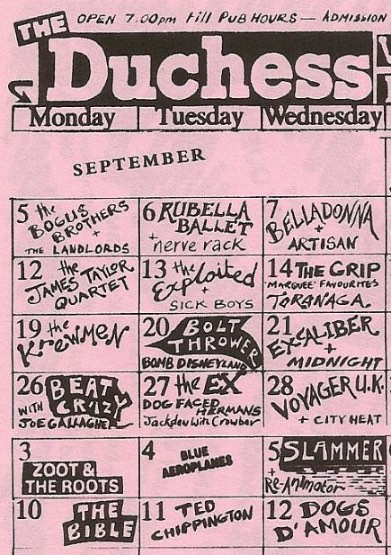 THE
OPEN 7.00pm till PUB HOURS — ADMISSION
Duchess
Monday Tuesday Wednesday
SEPTEMBER
5 the BOGUS BROTHERS + THE LANDLORDS
6 RUBELLA BALLET + nerve rack
7 BELLADONNA + ARTISAN
12 the JAMES TAYLOR QUARTET
13 the Exploited + SICK BOYS
14 THE GRIP 'MARQUEE' FAVOURITES TORANAGA
19 the Krewmen
20 BOLT THROWER BOMB DISNEYLAND
21 EXCALIBER + MIDNIGHT
26 BEAT CRAZY WITH JOE GALLAGHER
27 the EX DOG FACED HERMANS Jackdaw With Crowbar
28 VOYAGER U.K. + CITY HEAT
3 ZOOT & THE ROOTS
4 BLUE AEROPLANES
5 SLAMMER + Re-Animator
10 THE BIBLE
11 TED CHIPPINGTON
12 DOGS D'AMOUR